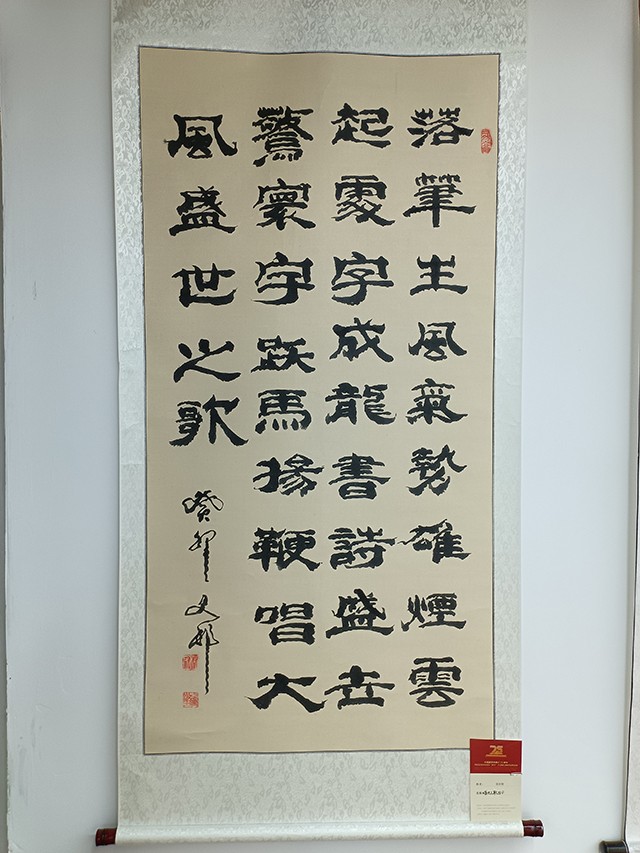 落筆生風氣勢雄煙雲
起處字成龍書詩盛世
驚寰宇跃馬揚鞭唱大
風盛世之歌
癸卯